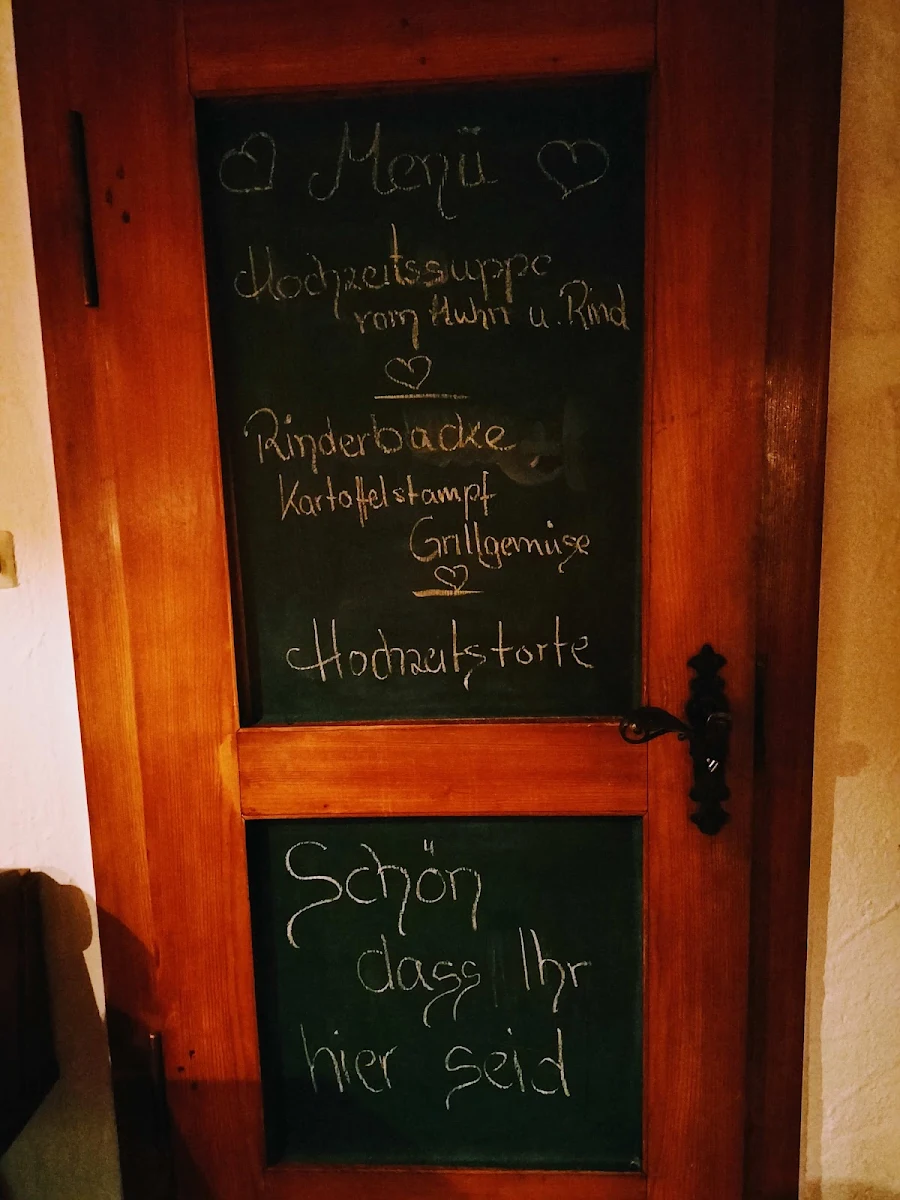 Menü
Hochzeitssuppe
vom Huhn u. Rind
Rinderbacke
Kartoffelstampf
Grillgemüse
Hochzeitstorte
Schön
dass Ihr
hier seid